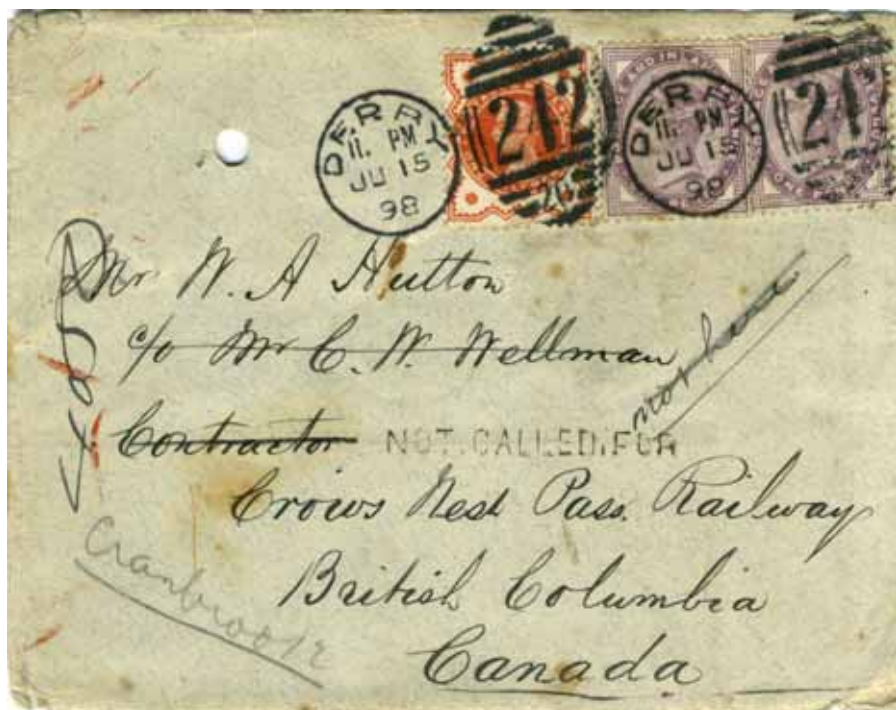 DERRY
11. PM
JU 15
98
242
DERBY
11. PM
JU 15
98
24
Mr. W. A Hutton
c/o Mr C. W. Wellman
Contractor
NOT CALLED FOR
not here
Crows Nest Pass. Railway
British Columbia
Canada
Cranbrook